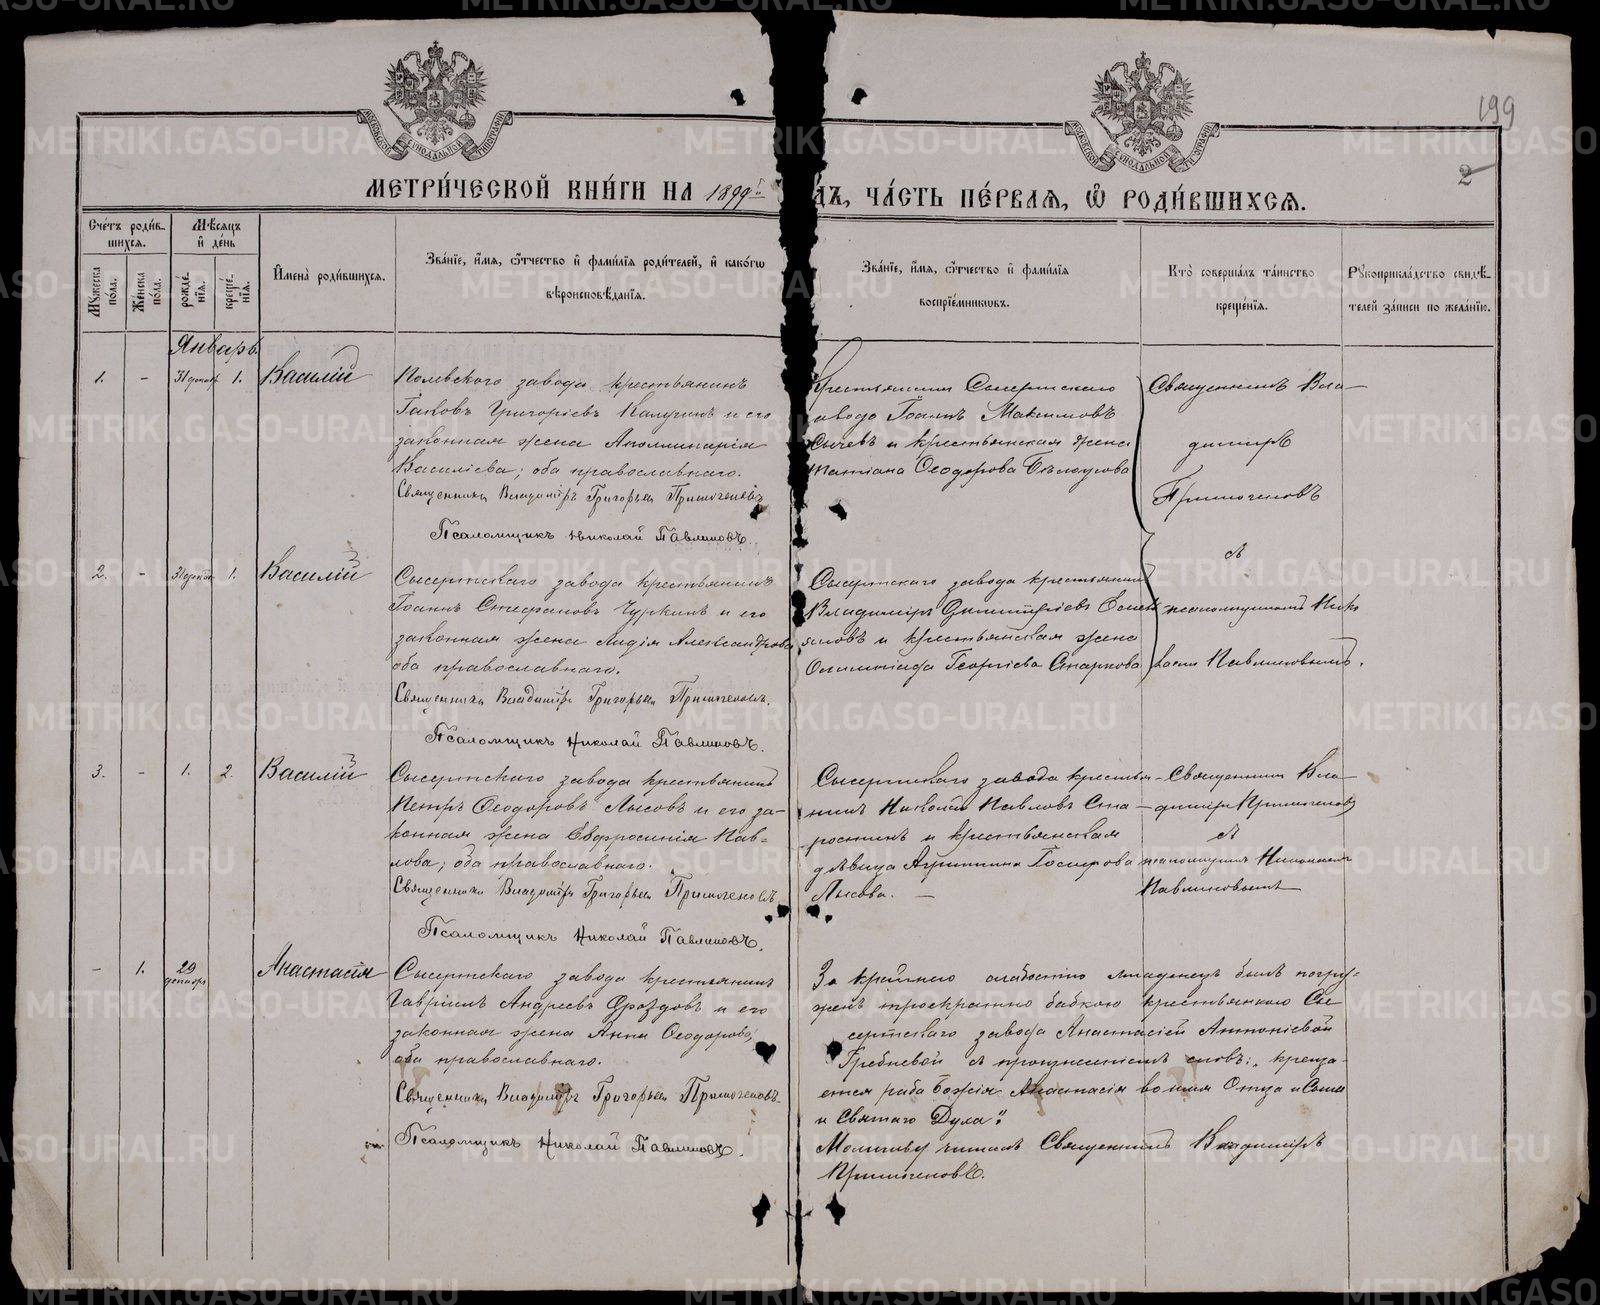 199
2
МЕТРИ́ЧЕСКОЙ КНИ́ГИ НА 1899й ДЪ, ЧА́СТЬ ПЕ́РВАѦ, Ѡ҆ РОДИ́ВШИХСѦ.
Сче́тъ роди́в-
шихсѧ.
Мꙋжеска по́ла.
Же́нска по́ла.
Мѣ́сѧцъ и҆ де́нь
рожде́-
нїѧ.
креще́-
нїѧ.
И҆мена̀ роди́вшихсѧ.
Зва́нїе, и҆́мѧ, ѻ҆́тчество и҆ фами́лїѧ роди́телей, и҆ како́гѡ
вѣроисповѣ́данїѧ.
Зва́нїе, и҆́мѧ, ѻ҆́тчество и҆ фами́лїѧ
воспрїе́мникѡвъ.
Кто̀ соверша́лъ та́инство
креще́нїѧ.
Рꙋкоприкла́дство свидѣ́-
телей за́писи по жела́нїю.
Январь
1. - 31 декаб 1. Василій
Полевскаго завода крестьянинъ
Іаковъ Григоріевъ Калугинъ и его
законная жена Аполлинарія
Василіева; оба православнаго.
Священникъ Владиміръ Григорьевъ Примогеновъ
Псаломщикъ Николай Павлиновъ.
Крестьянинъ Сысертскаго
завода Іоаннъ Максимовъ
Сычевъ и крестьянская жена
Татіана Ѳеодорова Бѣлоусова
Священникъ Вла-
диміръ
Примогеновъ
съ
псаломщикомъ Нико
лаемъ Павлиновымъ.
2. - 31 декаб 1. Василій
Сысертскаго завода крестьянинъ
Іоаннъ Стефановъ Чуркинъ и его
законная жена Лидія Александрова
оба православнаго.
Священникъ Владиміръ Григорьевъ Примогеновъ.
Псаломщикъ Николай Павлиновъ.
Сысертскаго завода крестьянинъ
Владиміръ Димитріевъ
и крестьянская жена
Олимпіада Георгіева Старкова
3. - 1. 2. Василій
Сысертскаго завода крестьянинъ
Петръ Ѳеодоровъ Лысовъ и его за-
конная жена Евфросинія Пав-
лова; оба православнаго.
Священникъ Владиміръ Григорьевъ Примогеновъ
Псаломщикъ Николай Павлиновъ.
Сысертскаго завода крестья-
нинъ Николай Павловъ Ста-
ростинъ и крестьянская
дѣвица Агриппина Іосифова
Лысова. -
Священникъ Вла-
диміръ Примогеновъ
съ
псаломщикомъ Николаемъ
Павлиновымъ
- 1. 29 декабр Анастасія
Сысертскаго завода крестьянинъ
Гавріилъ Андреевъ Дроздовъ и его
законная жена Анна Ѳеодорова,
оба православнаго.
Священникъ Владиміръ Григорьевъ Примогеновъ
Псаломщикъ Николай Павлиновъ.
За крайнею слабостію младенецъ былъ погру-
женъ троекратно бабкою крестьянкою Сы-
сертскаго завода Анастасіей Антоніевой
Гребневой съ произнесеніемъ словъ: „креща-
ется раба Божія Анастасія во имя Отца и Сына
и Святаго Духа“.
Молитву читалъ Священникъ Владиміръ
Примогеновъ.
METRIKI.GASO-URAL.RU